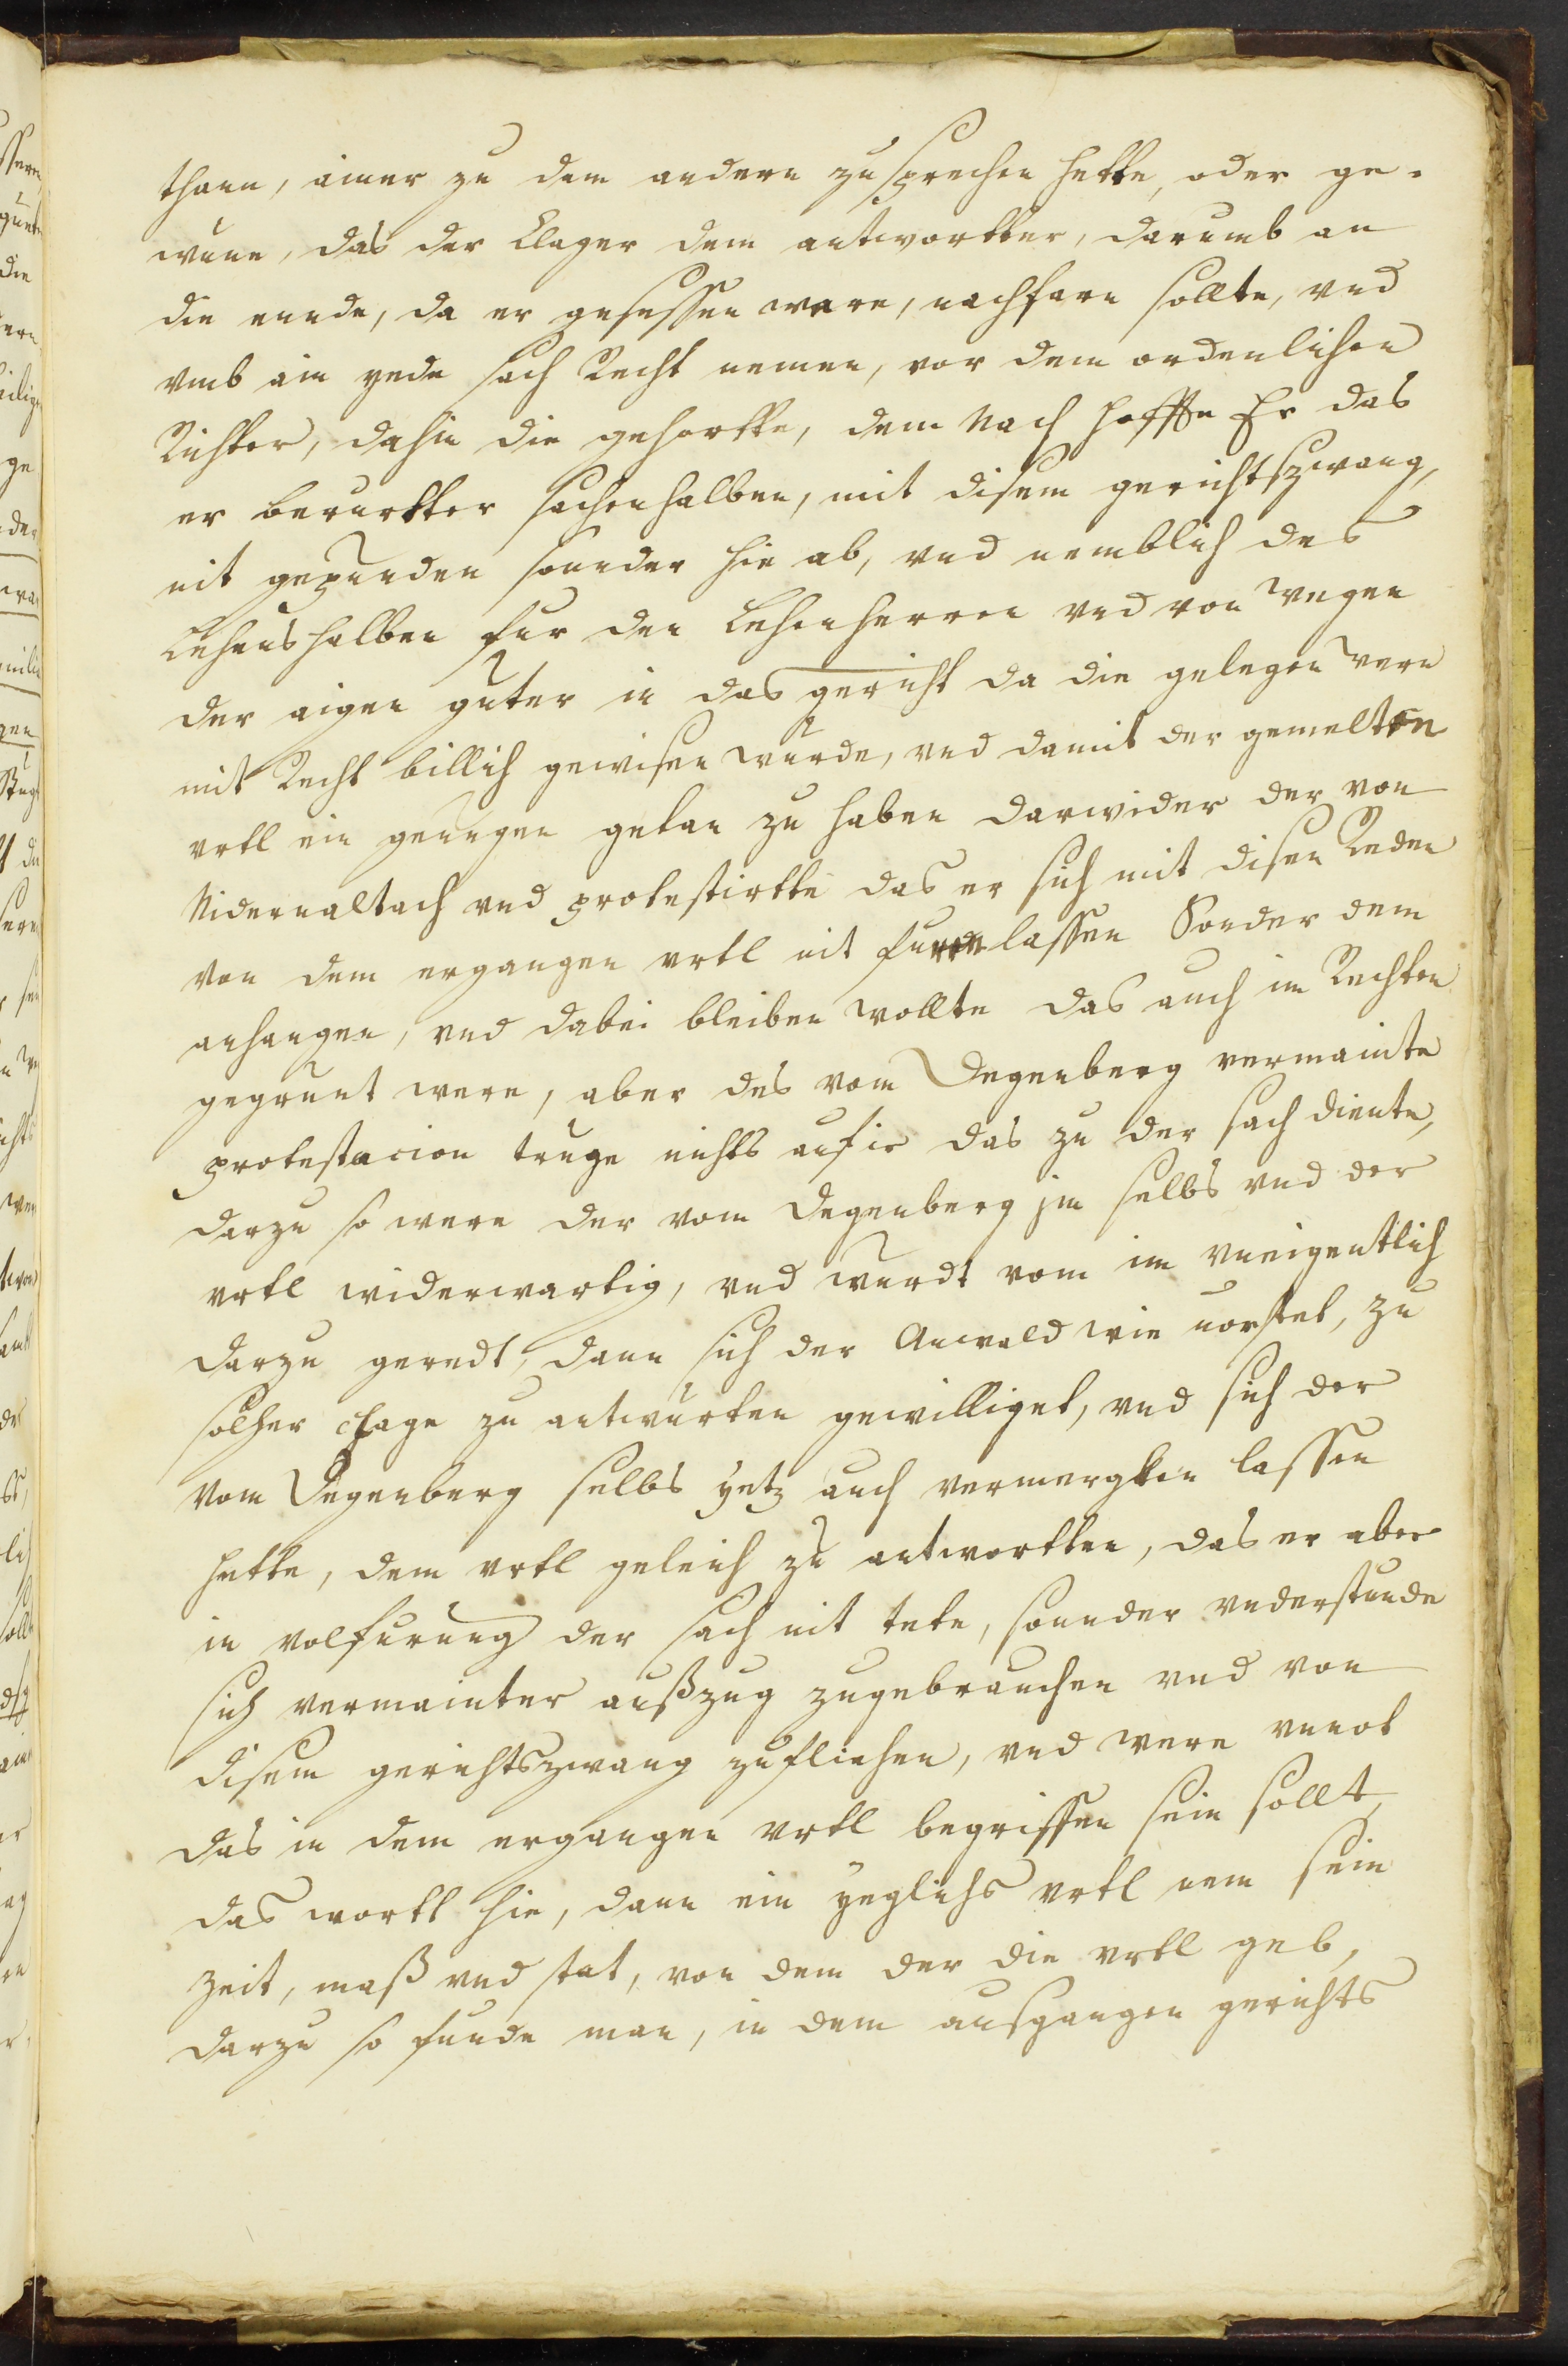 thann, ainer zu dem andern zusprechen hette, oder ge-
wune, das der Clager dem antwortter, darumb an
die ennde, da er gesessen were, nachfarn sollte, vnd
vmb ain yede sach Recht nemen, vor dem ordenlichen
Richter, dahin die gehortte, dem Nach hoffte Er das
er berurtter sachenhalben, mit disem gerichtszwang,
nit gepunden sonnder hie ab, vnd nemblich des
Lehenshalben fur den Lehenherren vnd von wegen
der aigen guter in das gericht da die gelegen wern
mit Recht billich gewisen wurde, vnd damit der gemelten
vrtl ein genugen getan zu haben darwider der von
Nidernaltach vnd protestirtte das er sich mit disen Reden
von dem ergangen vrtl nit furen lassen Sonder dem
anhangen, vnd dabei bleiben wollte das auch im Rechten
gegrunt were, aber des vom Degenberg vermainte
protestacion truge nichts auf ir das zu der sach diente,
darzu so were der vom Degenberg jm selbs vnd der
vrtl widerwartig, vnd wurdt vom im vneigentlich
darzu geredt, dann sich der Anwald wie uorstet, zu
solher clage zu antwurten gewilliget, vnd sich der
vom Degenberg selbs yetz auch vermergken lassen
hette, dem vrtl geleich zu antwortten, das er aber
in volfurung der sach nit tete, sonnder vnderstunde
sich vermainter außzug zugebrauchen vnd von
disem gerichtszwang zufliehen, vnd were vnnot
das in dem ergangen vrtl begriffen sein sollt,
das wortt hie, dann ein yeglichs vrtl nem sein
zeit, maß vnd stat, von dem der die vrtl geb,
darzu so funde man, in dem ausgangen gerichts